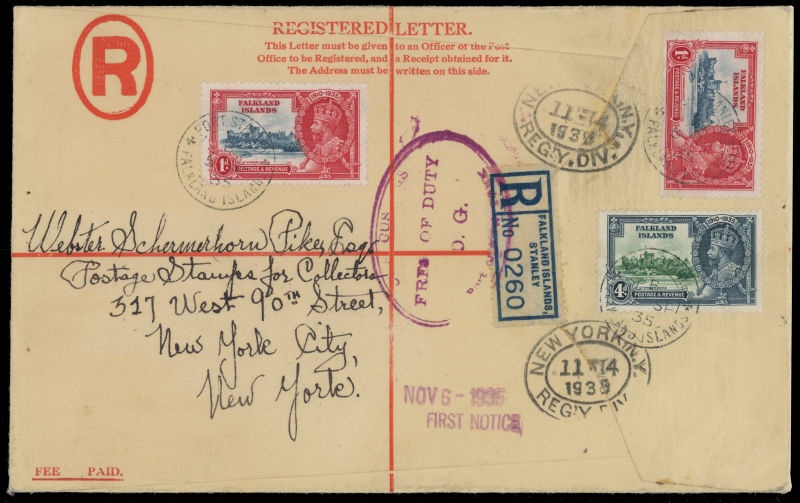 REGISTERED LETTER.
This Letter must be given to an Officer of the Post
Office to be Registered, and a Receipt obtained for it.
The Address must be written on this side.
R
1910-1935
FALKLAND
ISLANDS
1d
POSTAGE & REVENUE
FALKLAND ISLANDS
35
NEW YORK, N.Y.
11-14
1935
REG'Y. DIV.
1910-1935
FALKLAND
ISLANDS
1d
POSTAGE & REVENUE
FREE OF DUTY
D. G.
R
No 0260
FALKLAND ISLANDS,
STANLEY
1910-1935
FALKLAND
ISLANDS
4d
POSTAGE & REVENUE
35
Webster Schermerhorn Pike, Esq.
Postage Stamps for Collectors
517 West 90TH Street,
New York City,
New York.
NEW YORK, N.Y.
11-14
1935
REG'Y DIV
NOV 6 - 1935
FIRST NOTICE
FEE PAID.